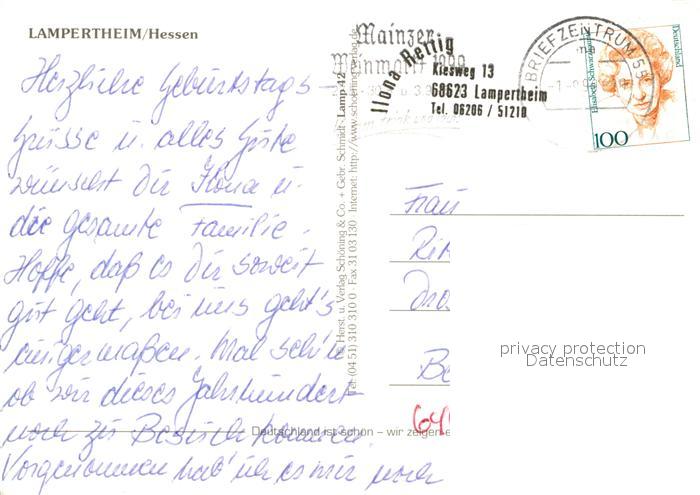 LAMPERTHEIM/Hessen
Herzliche Geburtstags-
grüsse u. alles Gute
wünscht Dir Ilona u.
die gesamte Familie.
Hoffe, daß es Dir soweit
gut geht, bei uns geht's
einigermaßen. Mal seh'n
ob wir dieses Jahrhundert
noch zu Besuch kommen.
Vorgenommen hab' ich es mir noch
Deutschland ist schön – wir zeigen e
Herst. u. Verlag Schöning & Co. + Gebr. Schmidt · Lamp 42
Tel. (04 51) 310 310 0 · Fax 31 03 130 · Internet: http://www.schoening-verlag.de
Mainzer
Weinmarkt 1999
Ilona Rettig
Kiesweg 13
68623 Lampertheim
Tel. 06206 / 51210
BRIEFZENTRUM 55
Elisabeth Schwarz
Deutschland
100
Frau
Be
64
privacy protection
Datenschutz